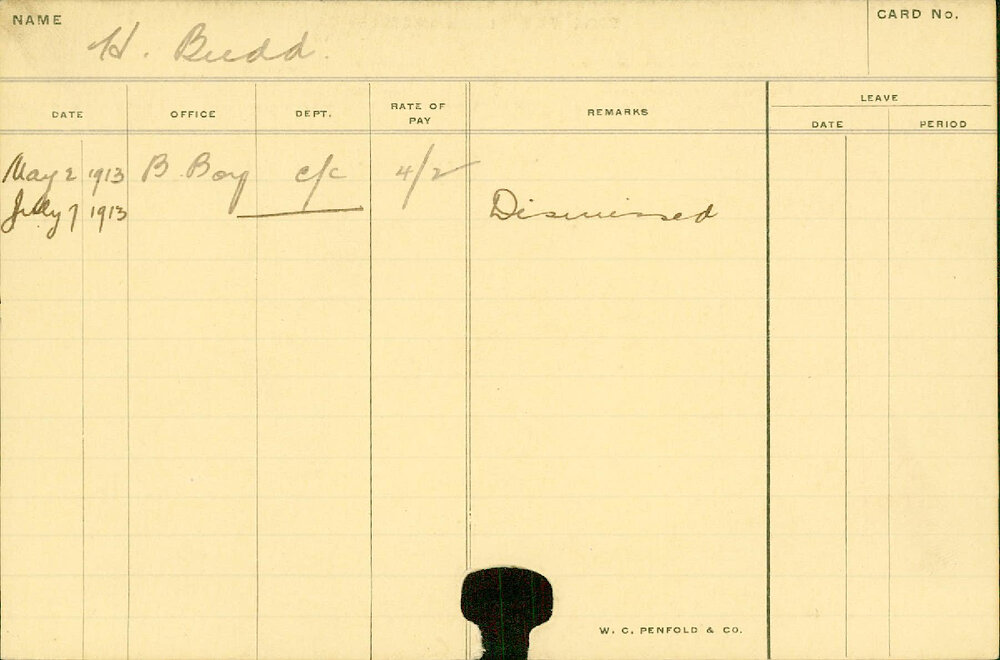 NAME H. Budd. CARD No.
LEAVE
DATE OFFICE DEPT. RATE OF PAY REMARKS DATE PERIOD
May 2 1913 B. Boy c/c 4/2
July 7 1913 Dismissed
W. C. PENFOLD & CO.